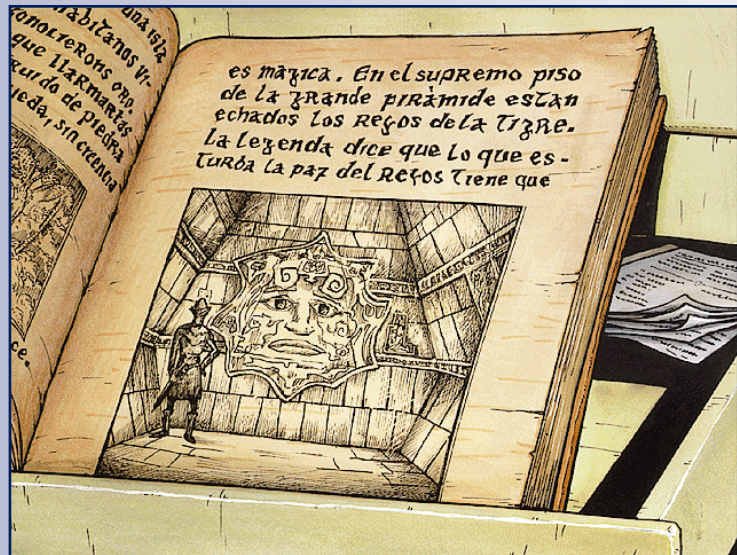 una isla
habitanos vi-
que llarmarlas
ruido de piedra
ueda, sin creencia
ce.
es magica. En el supremo piso
de la grande piràmide estan
echados los Reyos de la Tigre.
La legenda dice que lo que es-
turba la paz del Reyos tiene que